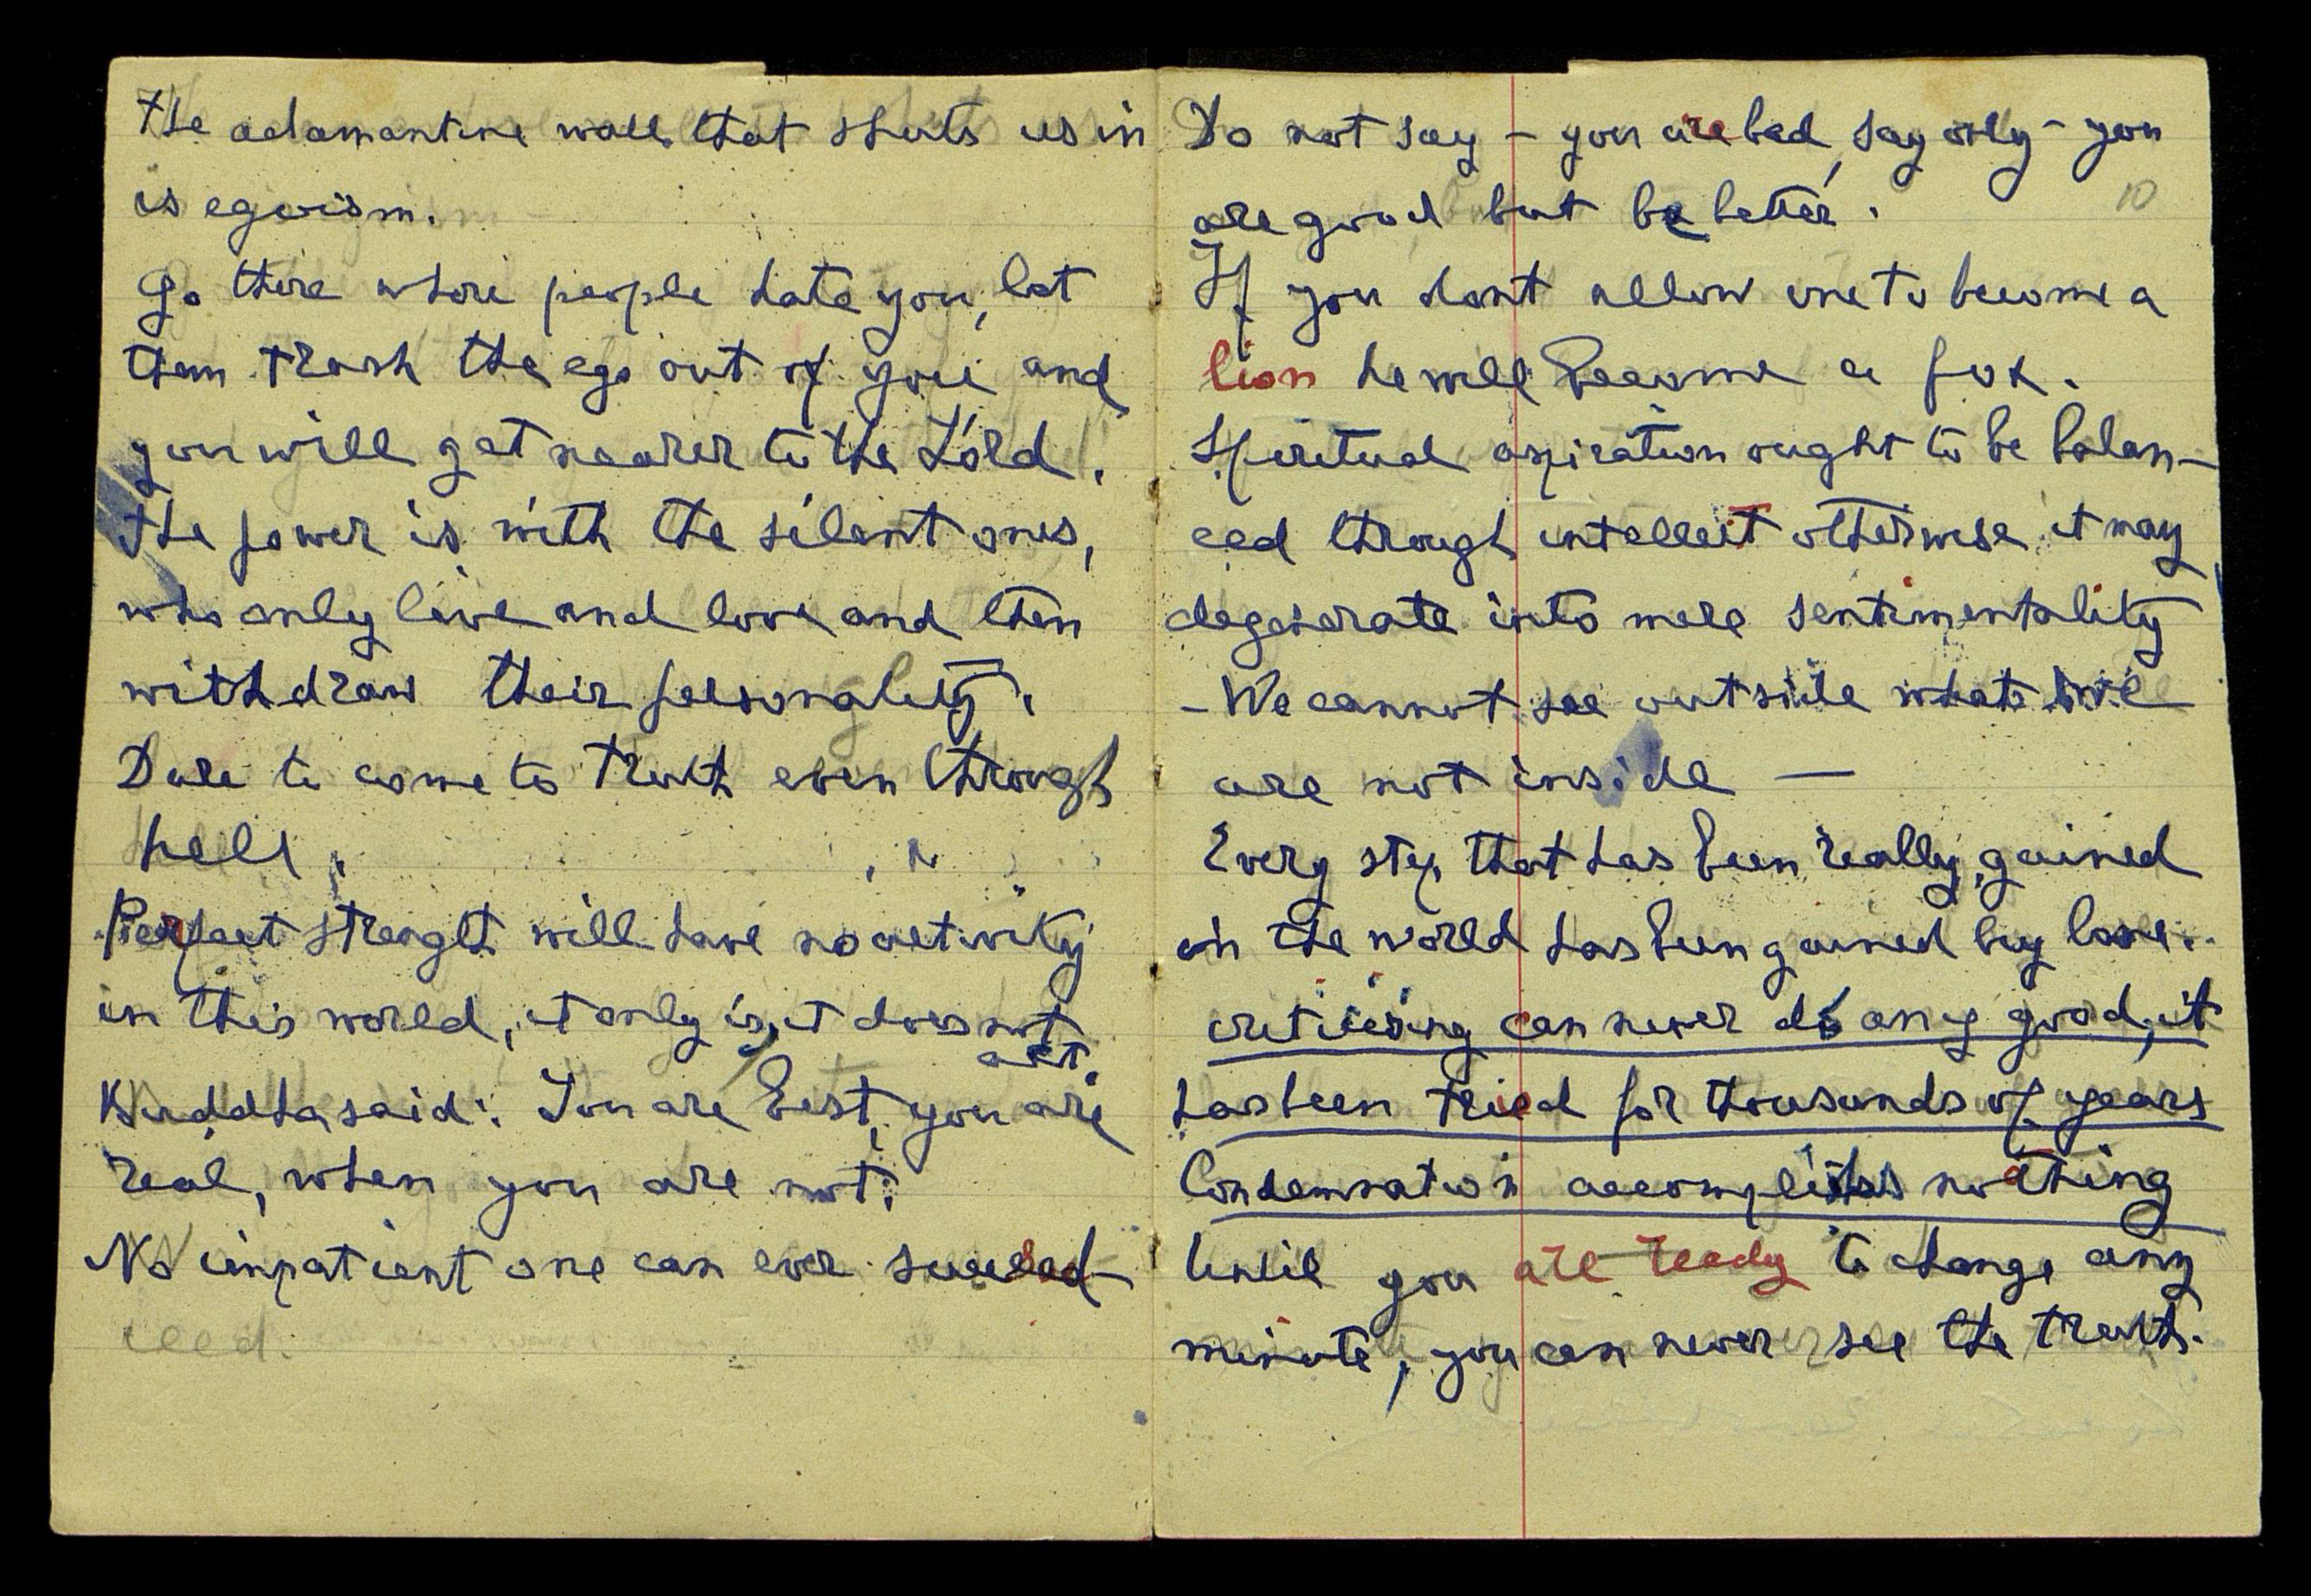 The adamantine wall that shuts us in
is egoism.
Go there where people hate you, let
them trash the ego out of you and
you will get nearer to the Lord.
The power is with the silent ones,
who only live and love and then
withdraw their personality.
Dare to come to truth even through
hell.
Perfect strenght will have no activity
in this world, it only is, it does not
act.
Buddha said: You are best, you are
real, when you are not.
No impatient one can ever succeed
ceed.
Do not say - you are bad, say only - you
10
are good but be better.
If you dont allow one to become a
lion he will become a fox.
Spiritual aspiration ought to be balan-
ced through intellect otherwise it may
degenerate into mere sentimentality
- We cannot see outside what we
are not inside —
Every step that has been really gained
in the world has been gained by love.
criticising can never do any good, it
has been tried for thousands of years
Condemnation accomplishs nothing
Until you are ready to change any
minute, you can never see the truth.